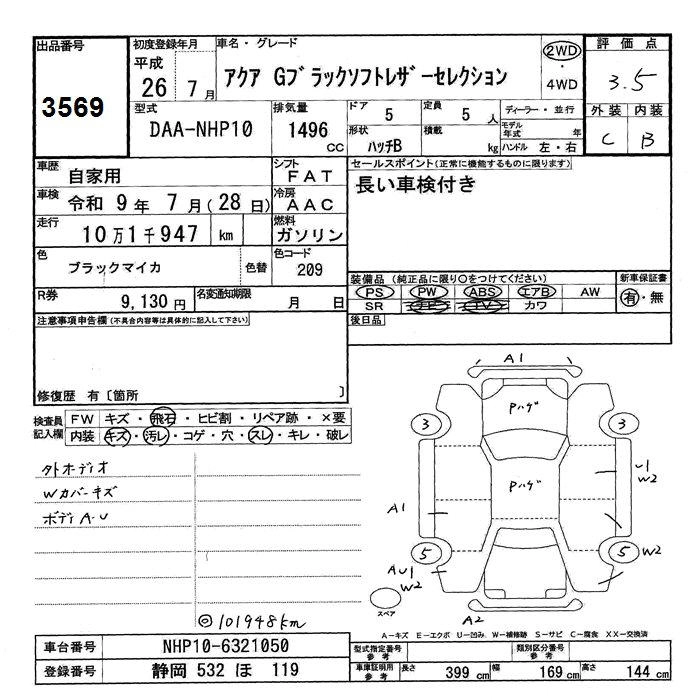 出品番号
3569
初度登録年月
平成
26 7月
車名・グレード
アクア Gブラックソフトレザーセレクション
2WD
・
4WD
評価点
3.5
外装 内装
C B
型式
DAA-NHP10
排気量
1496 cc
ドア 5
定員 5 人
形状 ハッチB
積載 kg
ディーラー・並行
モデル年式 年
ハンドル 左・右
車歴 自家用
シフト FAT
車検 令和 9年 7月(28日)
冷房 AAC
走行 10万1千947 km
燃料 ガソリン
色 ブラックマイカ 色替
色コード 209
R券 9,130円
名変通知期限 月 日
セールスポイント(正常に機能するものに限ります)
長い車検付き
装備品(純正品に限り○をつけてください)
PS PW ABS エアB AW
SR ナビ TV カワ
新車保証書
有・無
後日品
注意事項申告欄(不具合内容等は具体的に記入して下さい)
修復歴 有〔箇所 〕
検査員記入欄
FW キズ・飛石・ヒビ割・リペア跡・×要
内装 キズ・汚レ・コゲ・穴・スレ・キレ・破レ
外ホディオ
Wカバーキズ
ボディA-U
◎101948km
A1
Pハゲ
3 3
Pハゲ
U1
W2
A1
5 5
W2
AU1
W2
スペア
A2
A-キズ E-エクボ U-凹み W-補修跡 S-サビ C-腐食 XX-交換済
車台番号 NHP10-6321050
登録番号 静岡 532 ほ 119
型式指定番号 参考
類別区分番号 参考
車庫証明用 参考
長さ 399 cm 幅 169 cm 高さ 144 cm